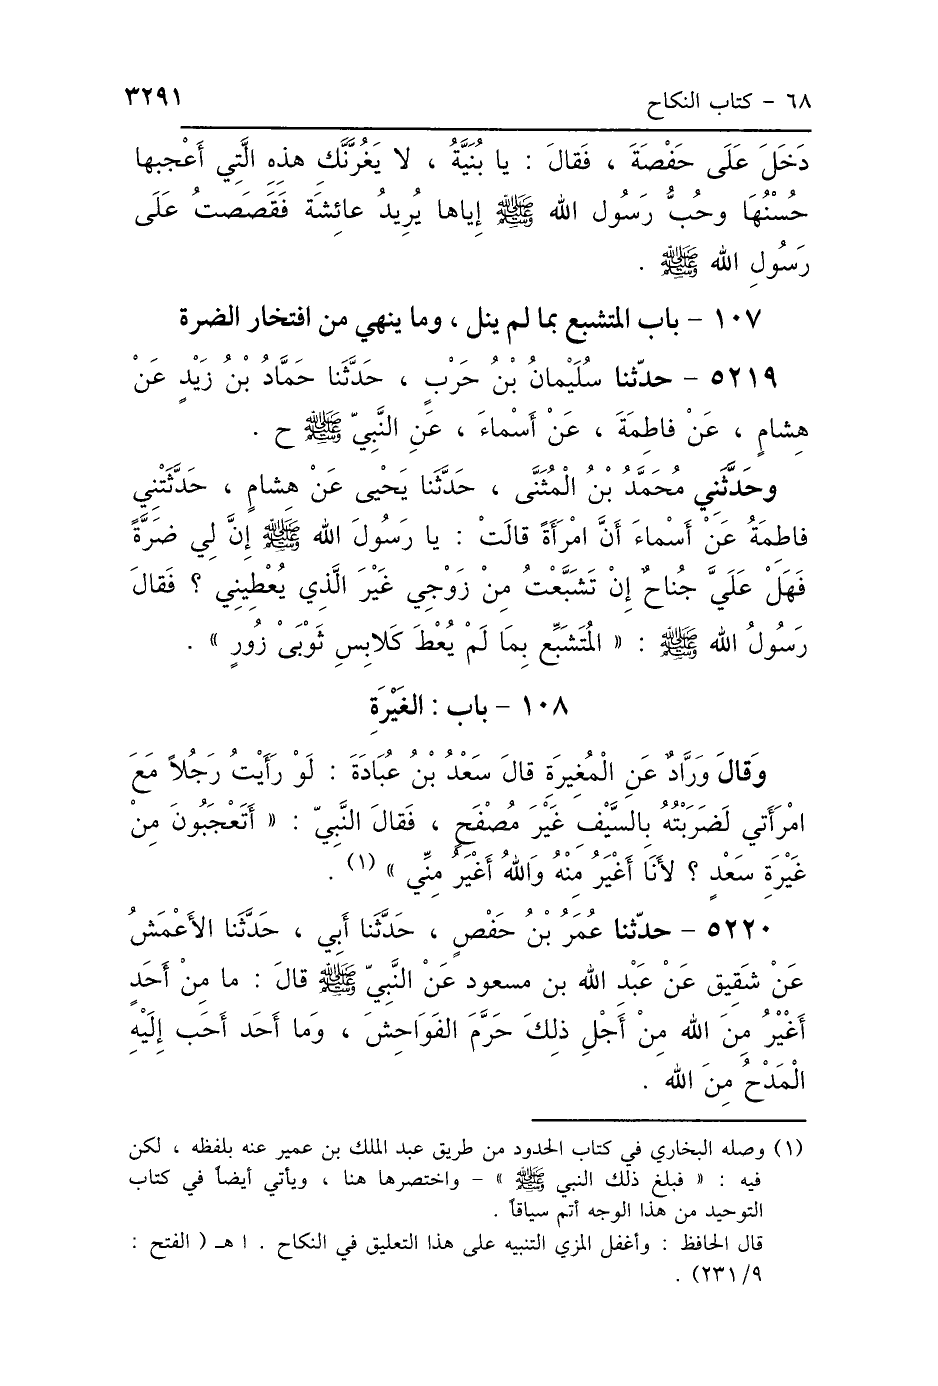 ٦٨ - كتاب النكاح ٣٢٩١
دَخَلَ عَلَى حَفْصَةَ ، فَقالَ : يا بُنَيَّةُ ، لا يَغُرَّنَّكِ هذِهِ الَّتِي أَعْجبها
حُسْنُهَا وحُبُّ رَسُول الله ﷺ إياها يُريدُ عائشَة فَقَصَصتُ عَلَى
رَسُولِ الله ﷺ .
١٠٧ - باب المتشبع بما لم ينل ، وما ينهي من افتخار الضرة
٥٢١٩ - حدّثنا سُلَيْمانُ بْنُ حَرْبٍ ، حَدَّثَنا حَمَّادُ بْنُ زَيْدٍ عَنْ
هِشامٍ ، عَنْ فاطِمَةَ ، عَنْ أَسْماءَ ، عَنِ النَّبيّ ﷺ ح .
وحَدَّثَنِي مُحَمَّدُ بْنُ الْمُثَنَّى ، حَدَّثَنا يَحْيى عَنْ هِشامٍ ، حَدَّثَتْنِي
فاطِمَةُ عَنْ أَسْماءَ أَنَّ امْرَأَةً قالَتْ : يا رَسُولَ الله ﷺ إنَّ لي ضَرَّةً
فَهَلْ عَلَيَّ جُناحٌ إنْ تَشَبَّعْتُ مِنْ زَوْجِي غَيْرَ الَّذي يُعْطِيني ؟ فَقالَ
رَسُولُ الله ﷺ : « الْمُتَشَبِّع بِمَا لَمْ يُعْطَ كَلابِسِ ثَوْبَىْ زُورٍ » .
١٠٨ - باب : الغَيْرَةِ
وَقالَ وَرَّادٌ عَنِ الْمُغِيرَةِ قالَ سَعْدُ بْنُ عُبَادَةَ : لَوْ رَأَيْتُ رَجُلاً مَعَ
امْرَأَتي لَضَرَبْتُهُ بِالسَّيْفِ غَيْرَ مُصْفَحٍ ، فَقالَ النَّبيّ : « أَتَعْجَبُونَ مِنْ
غَيْرَةِ سَعْدٍ ؟ لأَنَا أَغْيَرُ مِنْهُ وَاللهُ أَغْيَرُ مِنِّي » (١) .
٥٢٢٠ - حدّثنا عُمَرُ بْنُ حَفْصٍ ، حَدَّثَنا أَبي ، حَدَّثَنا الأَعْمَشُ
عَنْ شَقِيقٍ عَنْ عَبْدِ الله بن مسعود عَنْ النَّبيّ ﷺ قالَ : ما مِنْ أَحَدٍ
أَغْيْرُ مِنَ الله مِنْ أَجْلِ ذلِكَ حَرَّمَ الفَوَاحِشَ ، وَما أَحَد أَحَب إِلَيْهِ
الْمَدْحُ مِنَ الله .
(١) وصله البخاري في كتاب الحدود من طريق عبد الملك بن عمير عنه بلفظه ، لكن
فيه : « فبلغ ذلك النبي ﷺ » - واختصرها هنا ، ويأتي أيضاً في كتاب
التوحيد من هذا الوجه أتم سياقاً .
قال الحافظ : وأغفل المزي التنبيه على هذا التعليق في النكاح . ا هـ ( الفتح :
٩/ ٢٣١) .